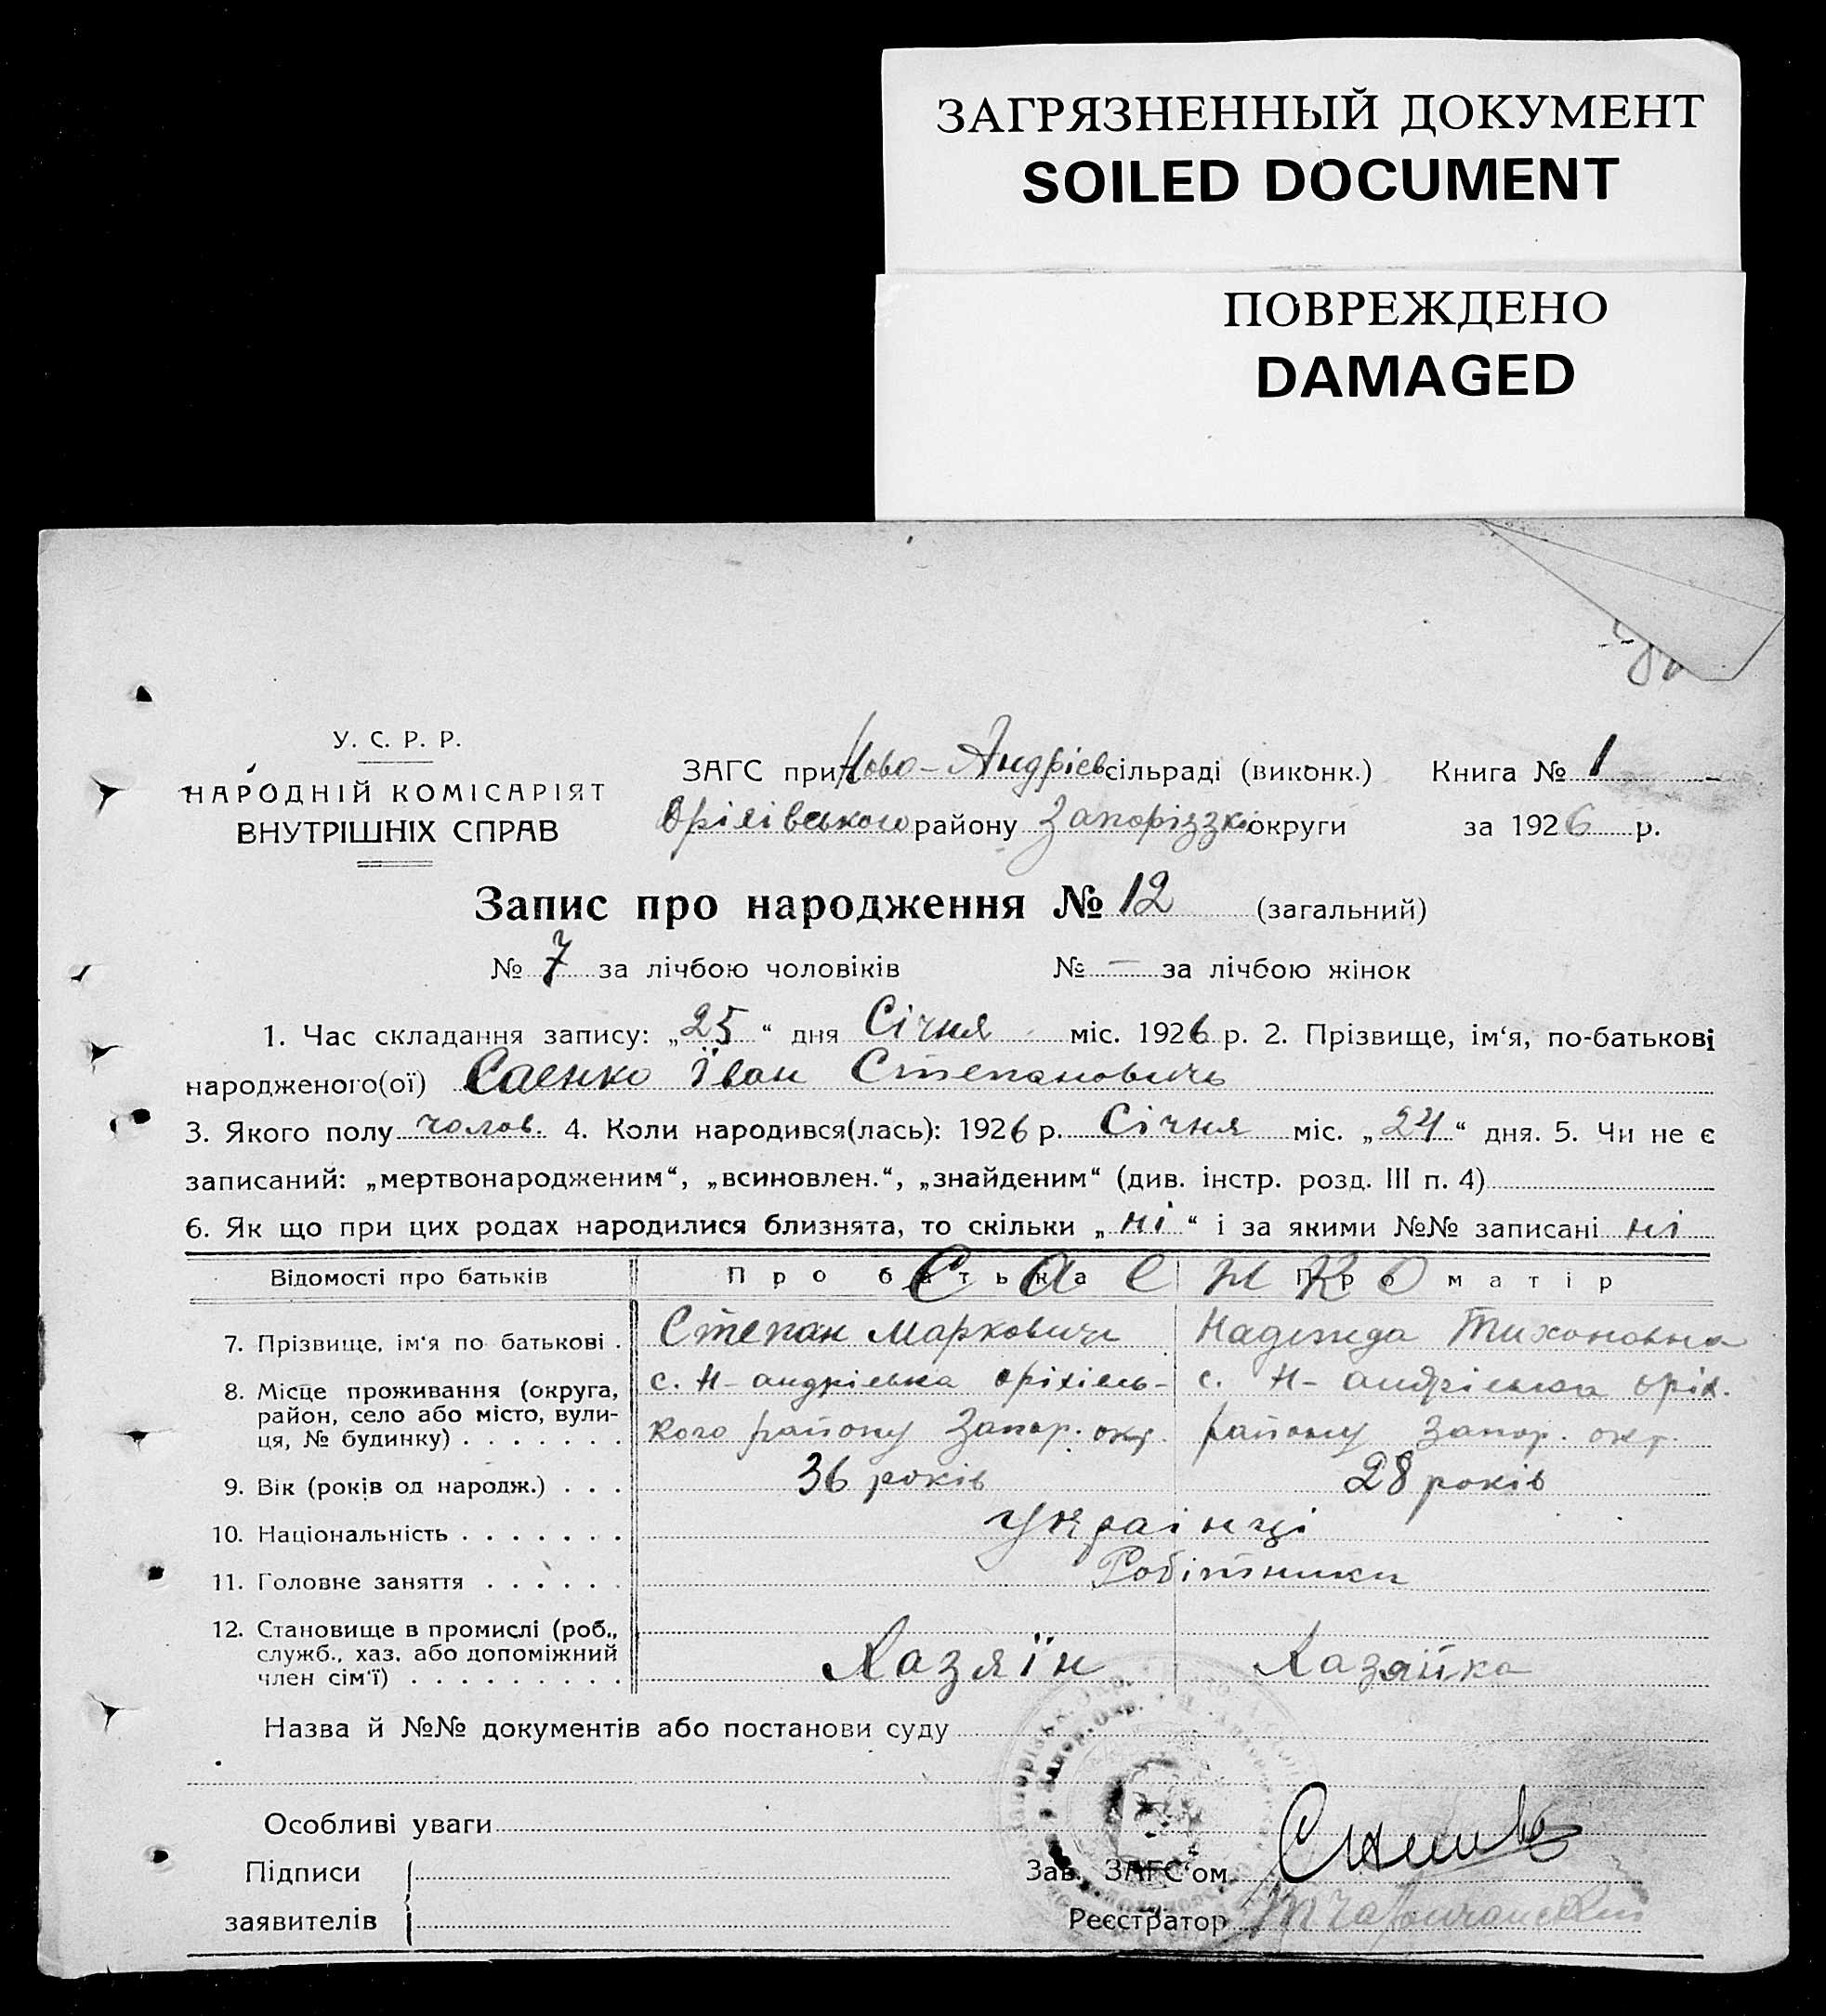 ЗАГРЯЗНЕННЫЙ ДОКУМЕНТ
SOILED DOCUMENT
ПОВРЕЖДЕНО
DAMAGED
У. С. Р. Р.
НАРОДНІЙ КОМІСАРІЯТ
ВНУТРІШНІХ СПРАВ
ЗАГС при Ново-Андрієв сільраді (виконк.) Книга № 1
району Запоріззко округи за 1926 р.
Запис про народження № 12 (загальний)
№ 7 за лічбою чоловіків № — за лічбою жінок
1. Час складання запису: „25“ дня Січня міс. 1926 р. 2. Прізвище, ім‘я, по-батькові
народженого(ої) Саенко Їван Степановичь
3. Якого полу чолов. 4. Коли народився(лась): 1926 р. Січня міс. „24“ дня. 5. Чи не є
записаний: „мертвонародженим“, „всиновлен.“, „знайденим“ (див. інстр. розд. III п. 4)
6. Як що при цих родах народилися близнята, то скільки „ні“ і за якими №№ записані ні
Відомості про батьків Про батька Про матір
Саенко
7. Прізвище, ім‘я по батькові . Степан Маркович Надежда Тихоновна
8. Місце проживання (округа, район, село або місто, вулиця, № будинку) . . . . . . .
с. Н-андріевка оріхівсь-
кого району Запор. окр.
с. Н-андріевка оріх.
району Запор. окр.
9. Вік (років од народж.) . . . 36 років 28 років
10. Національність . . . . . . . Українці
11. Головне заняття . . . . . . Робітники
12. Становище в промислі (роб.,
служб., хаз. або допоміжний
член сім‘ї) . . . . . . . . . Хазяїн Хазяйка
Назва й №№ документів або постанови суду
Особливі уваги
Підписи
заявителів
Зав. ЗАГС‘ом
Реєстратор